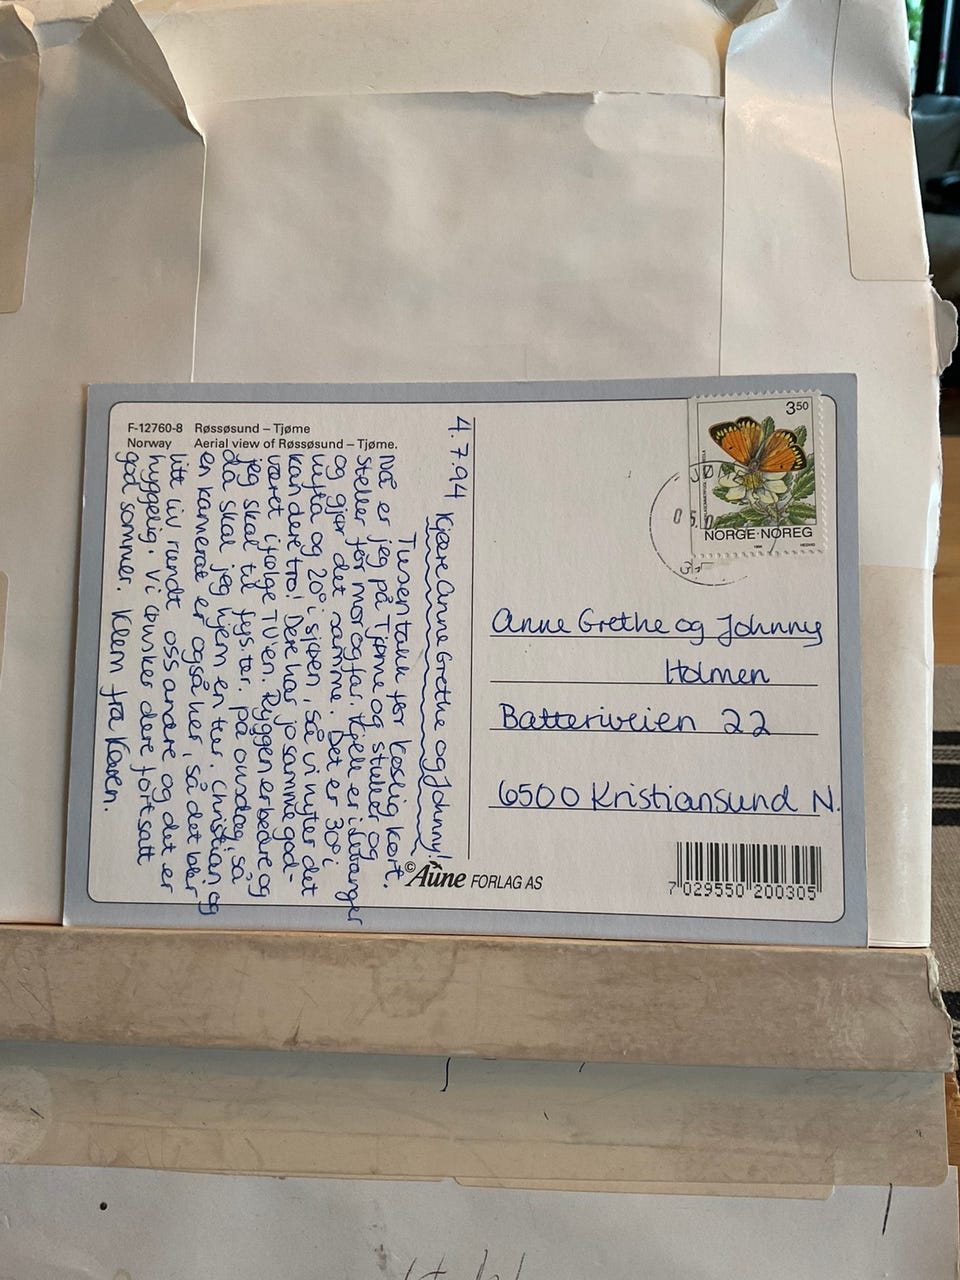 F-12760-8 Røssøsund – Tjøme
Norway Aerial view of Røssøsund – Tjøme.
4.7.94
Kjære Anne Grethe og Johnny!
Tusen takk for koslig kort.
Nå er jeg på Tjøme og stulter og
steller for mor og far. Kjell er i Levanger
og gjør det samme. Det er 30° i
lufta og 20° i sjøen, så vi nyter det
kan dere tro! Dere har jo samme god-
været ifølge TVen. Ryggen er bedre og
jeg skal til fyster. på onsdag, så
da skal jeg hjem en tur. Christian og
en kamerat er også her, så det blir
litt liv rundt oss andre og det er
hyggelig. Vi ønsker dere fortsatt
god sommer. Klem fra Karen.
350
NORGE·NOREG
Anne Grethe og Johnny
Holmen
Batteriveien 22
6500 Kristiansund N.
© Aune FORLAG AS
7 029550 200305